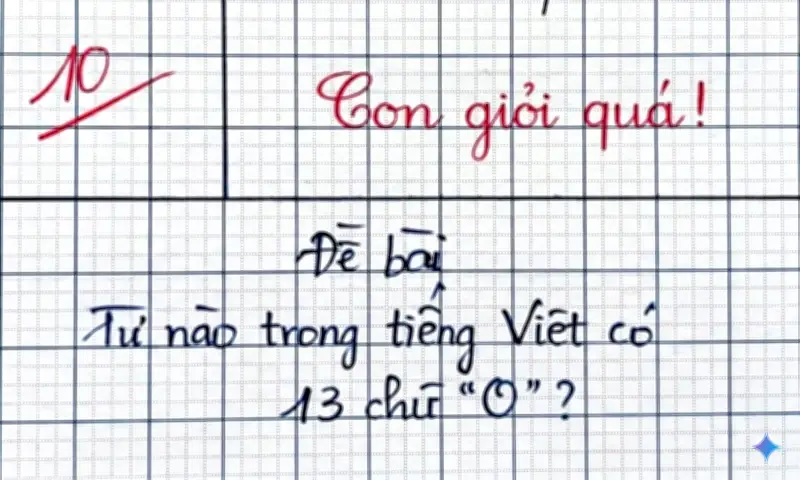 10
Con giỏi quá!
Đề bài
Từ nào trong tiếng Việt có
13 chữ “O”?